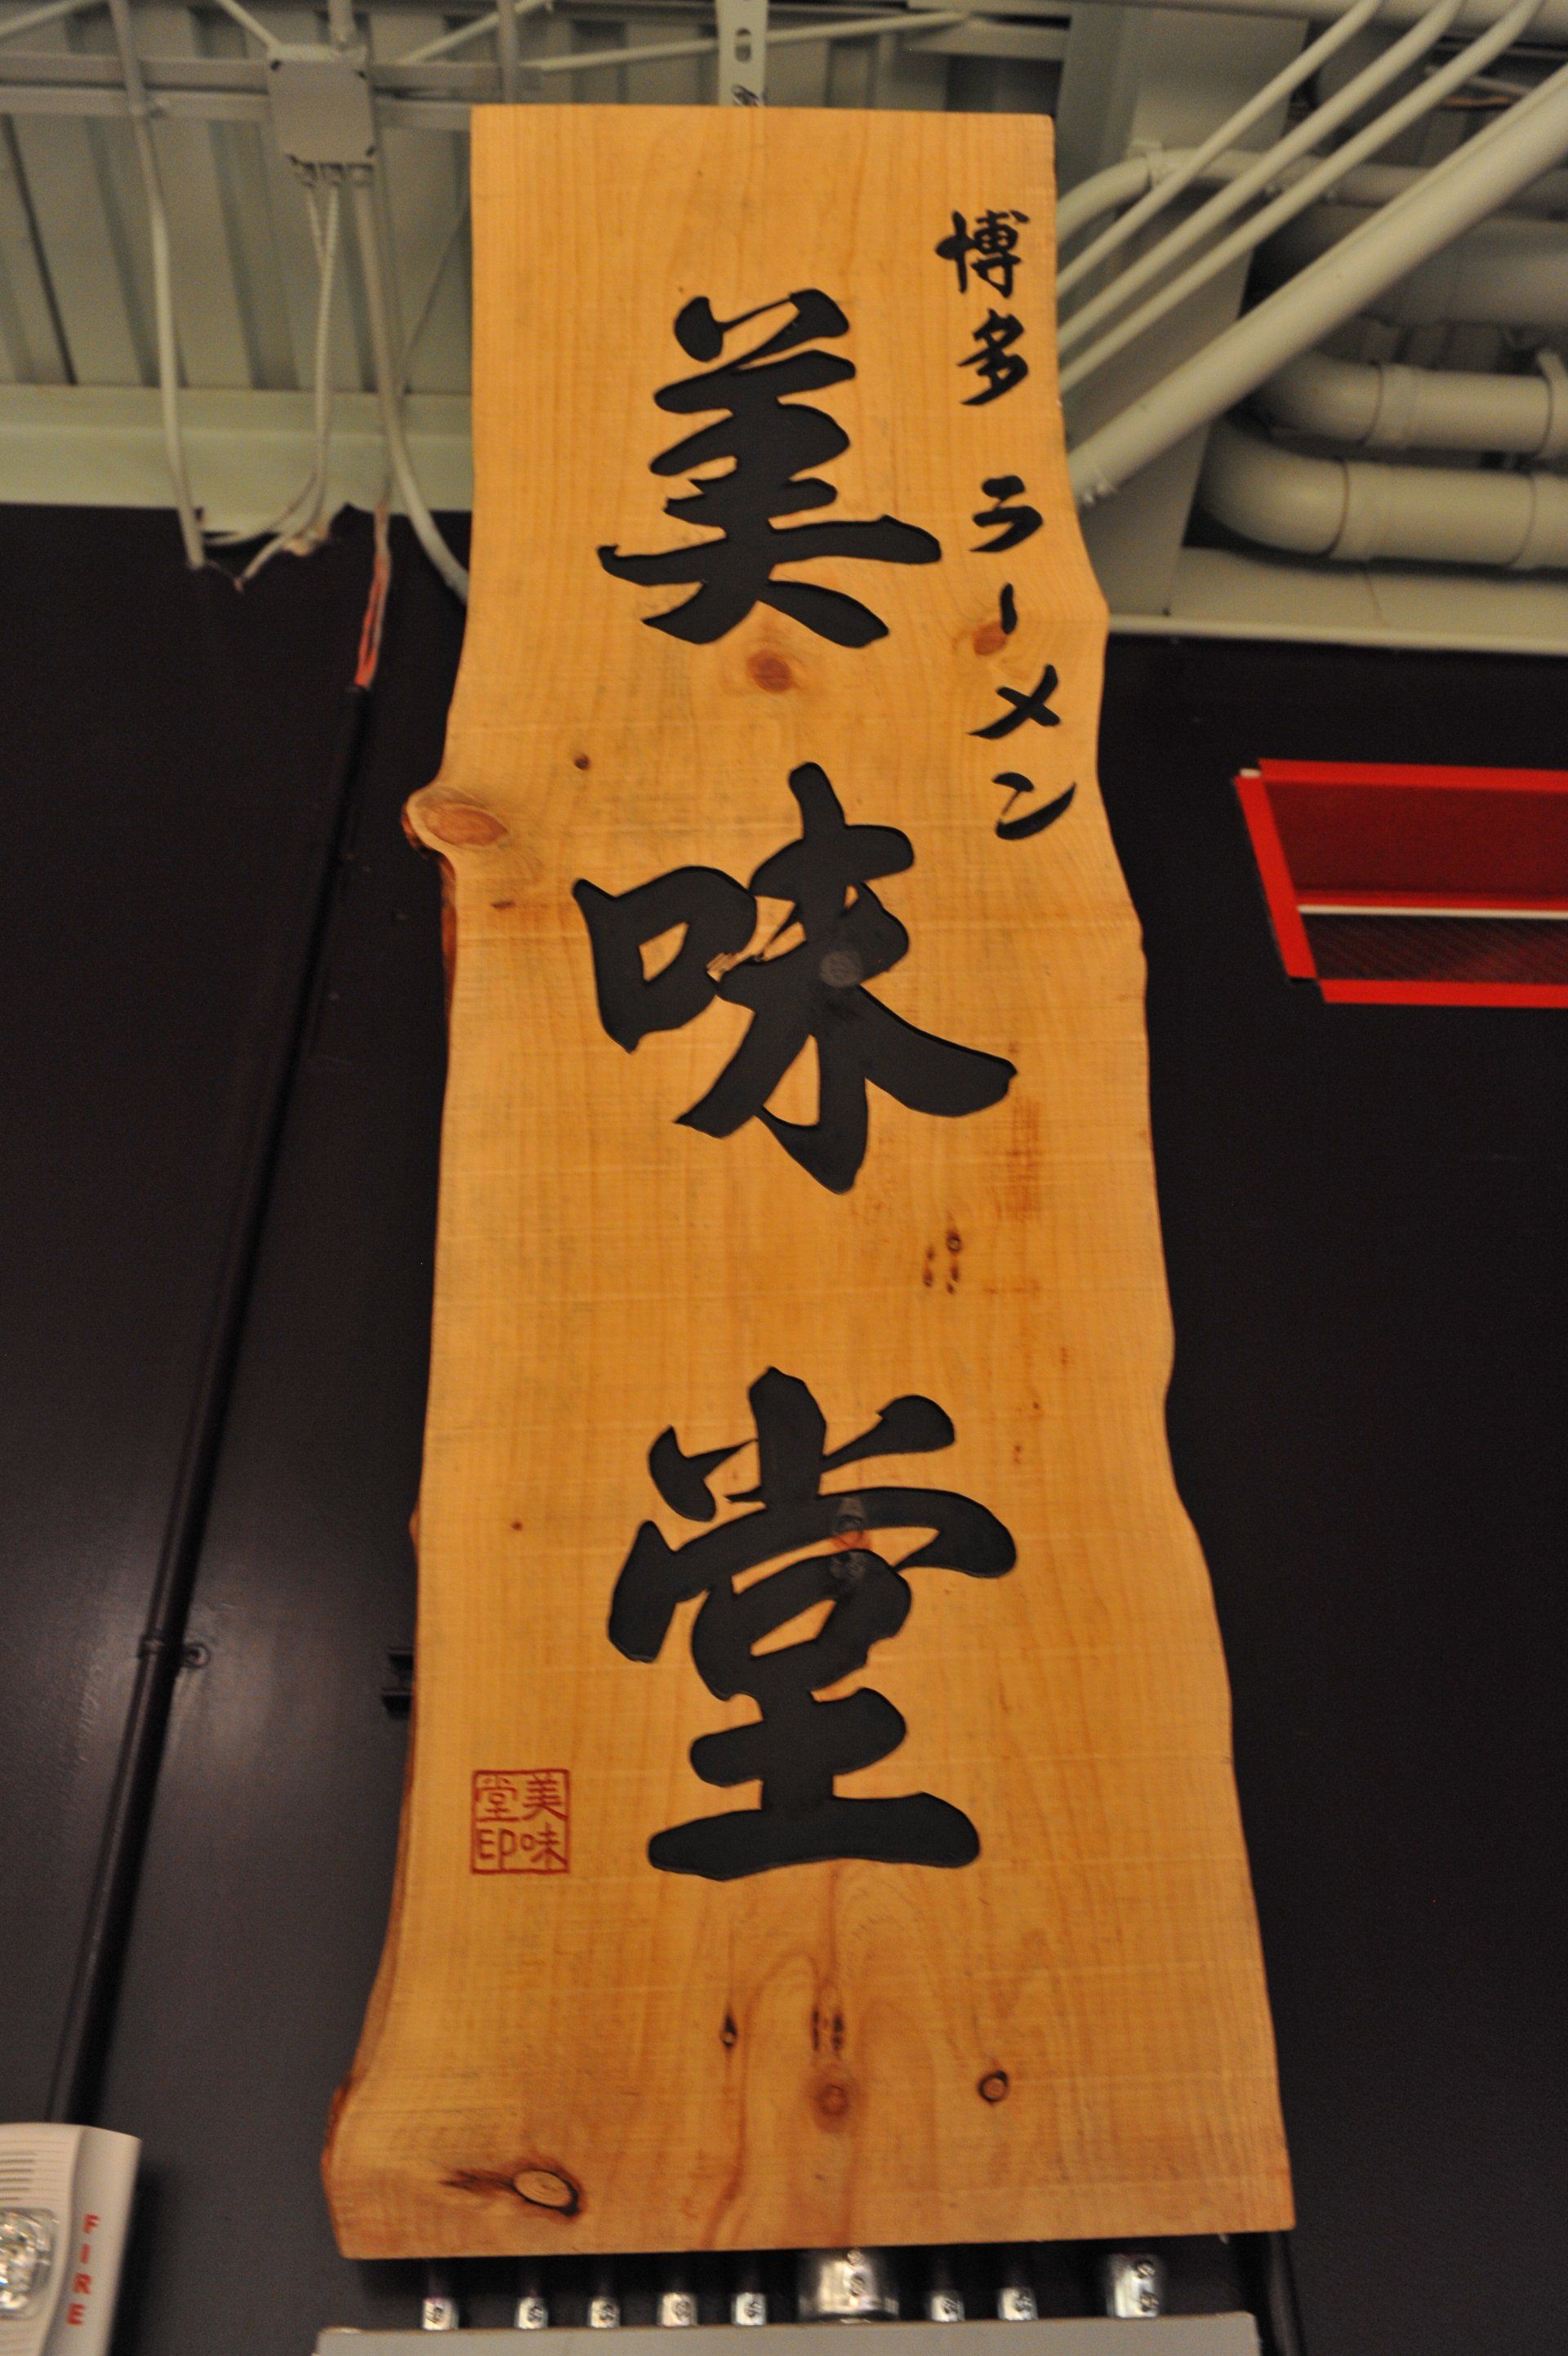 博多 ラーメン
美味堂
美味
堂印
FIRE